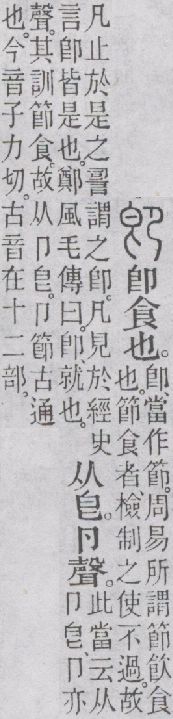 卽食也。
卽、當作節。周易所謂節飮食
也。節食者、檢制之使不過。故
凡止於是之䛐謂之卽。凡見於經史
言卽皆是也。鄭風毛傳曰。卽、就也。
从皀。卩聲。
此當云从
卩皀。卩亦
聲。其訓節食。故从卩皀。卩節古通
也。今音子力切。古音在十二部。